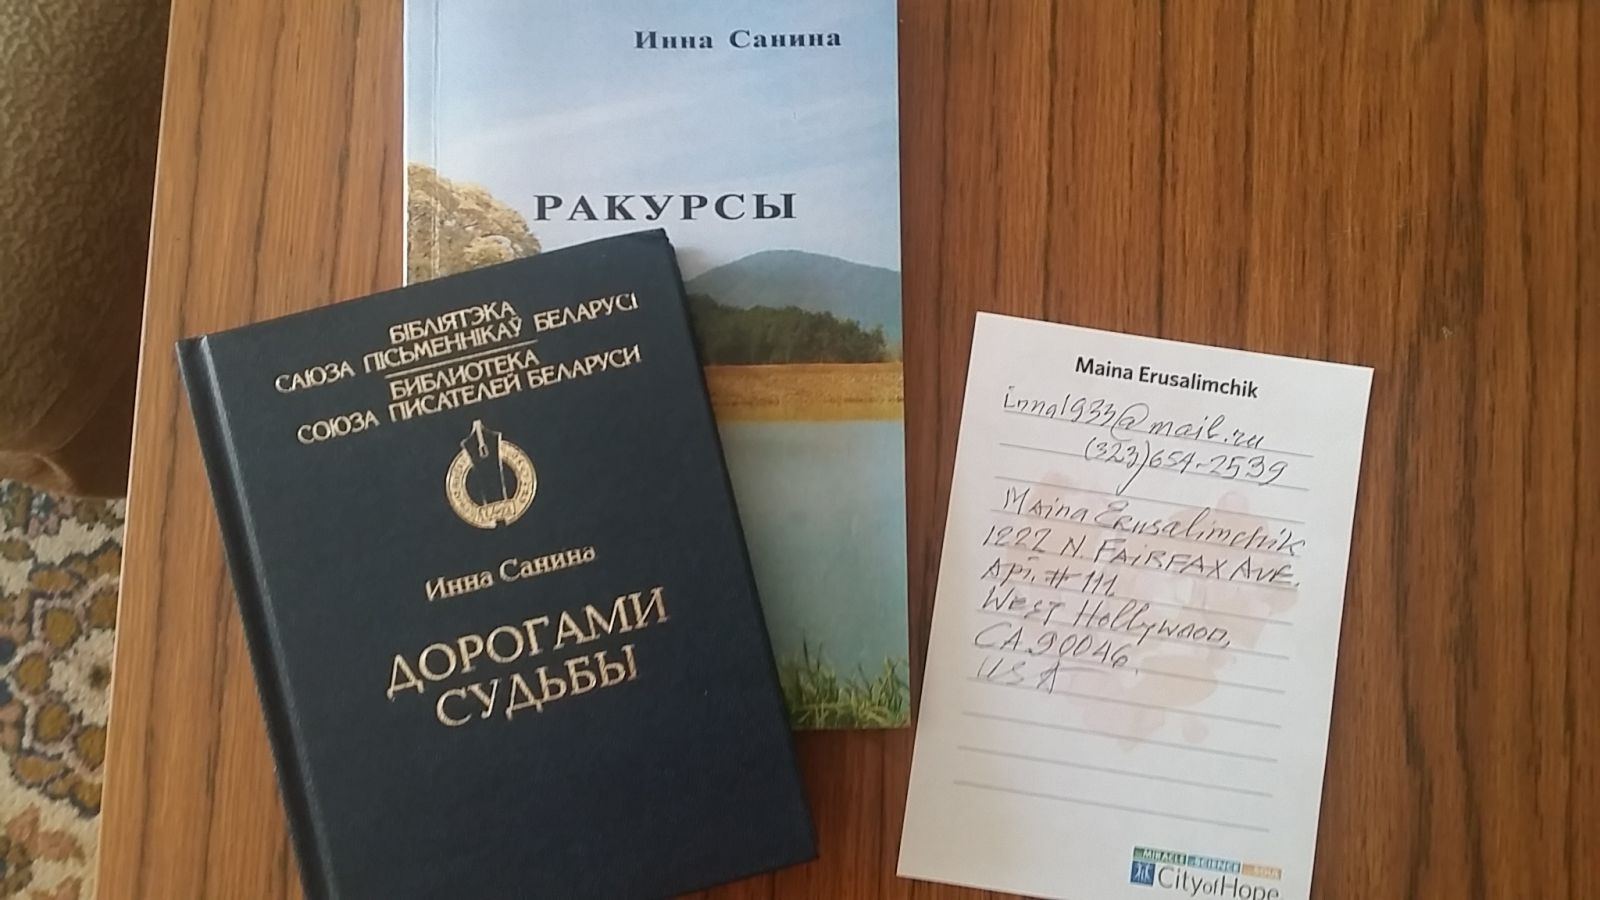 Инна Санина
РАКУРСЫ
БІБЛІЯТЭКА
САЮЗА ПІСЬМЕННІКАЎ БЕЛАРУСІ
БИБЛИОТЕКА
СОЮЗА ПИСАТЕЛЕЙ БЕЛАРУСИ
Инна Санина
ДОРОГАМИ
СУДЬБЫ
Maina Erusalimchik
inna1933@mail.ru
(323)654-2539
Maina Erusalimchik
1222 N. FAIRFAX AVE.
Apt. # 111.
WEST Hollywood,
CA. 90046.
USA
MIRACLE of SCIENCE SOUL
CityofHope